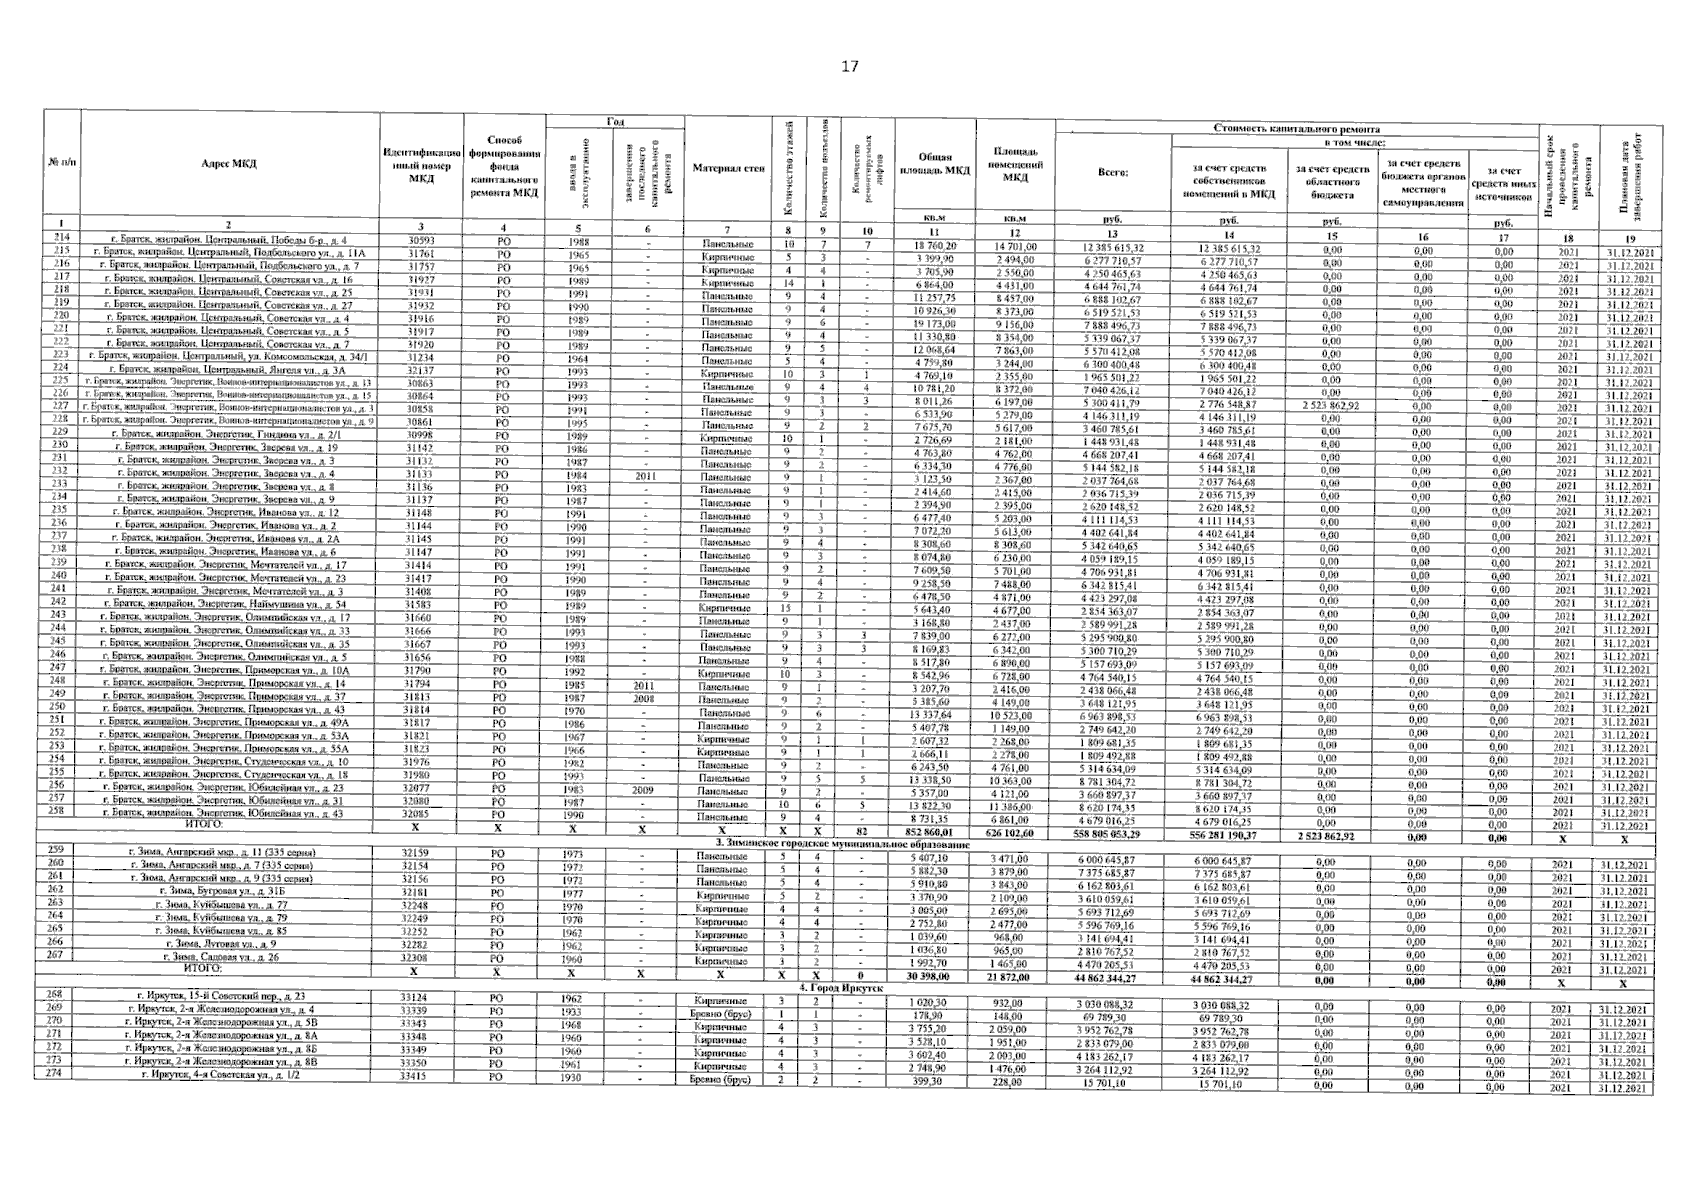 17
№ п/п | Адрес МКД | Идентификационный номер МКД | Способ формирования фонда капитального ремонта МКД | Год | Материал стен | Количество этажей | Количество подъездов | Количество ремонтируемых лифтов | Общая площадь МКД | Площадь помещений МКД | Стоимость капитального ремонта | Начальный срок проведения капитального ремонта | Плановая дата завершения работ
ввода в эксплуатацию | завершения последнего капитального ремонта | Всего: | в том числе:
за счет средств собственников помещений в МКД | за счет средств областного бюджета | за счет средств бюджета органов местного самоуправления | за счет средств иных источников
кв.м | кв.м | руб. | руб. | руб. | руб.
1 | 2 | 3 | 4 | 5 | 6 | 7 | 8 | 9 | 10 | 11 | 12 | 13 | 14 | 15 | 16 | 17 | 18 | 19
214 | г. Братск, жилрайон. Центральный, Победы б-р., д. 4 | 30593 | РО | 1988 | - | Панельные | 10 | 7 | 7 | 18 760,20 | 14 701,00 | 12 385 615,32 | 12 385 615,32 | 0,00 | 0,00 | 0,00 | 2021 | 31.12.2021
215 | г. Братск, жилрайон. Центральный, Подбельского ул., д. 11А | 31761 | РО | 1965 | - | Кирпичные | 5 | 3 | - | 3 399,90 | 2 494,00 | 6 277 710,57 | 6 277 710,57 | 0,00 | 0,00 | 0,00 | 2021 | 31.12.2021
216 | г. Братск, жилрайон. Центральный, Подбельского ул., д. 7 | 31757 | РО | 1965 | - | Кирпичные | 4 | 4 | - | 3 705,90 | 2 550,00 | 4 250 465,63 | 4 250 465,63 | 0,00 | 0,00 | 0,00 | 2021 | 31.12.2021
217 | г. Братск, жилрайон. Центральный, Советская ул., д. 16 | 31927 | РО | 1989 | - | Кирпичные | 14 | 1 | - | 6 864,00 | 4 431,00 | 4 644 761,74 | 4 644 761,74 | 0,00 | 0,00 | 0,00 | 2021 | 31.12.2021
218 | г. Братск, жилрайон. Центральный, Советская ул., д. 25 | 31931 | РО | 1991 | - | Панельные | 9 | 4 | - | 11 257,75 | 8 457,00 | 6 888 102,67 | 6 888 102,67 | 0,00 | 0,00 | 0,00 | 2021 | 31.12.2021
219 | г. Братск, жилрайон. Центральный, Советская ул., д. 27 | 31932 | РО | 1990 | - | Панельные | 9 | 4 | - | 10 926,30 | 8 373,00 | 6 519 521,53 | 6 519 521,53 | 0,00 | 0,00 | 0,00 | 2021 | 31.12.2021
220 | г. Братск, жилрайон. Центральный, Советская ул., д. 4 | 31916 | РО | 1989 | - | Панельные | 9 | 6 | - | 19 173,00 | 9 156,00 | 7 888 496,73 | 7 888 496,73 | 0,00 | 0,00 | 0,00 | 2021 | 31.12.2021
221 | г. Братск, жилрайон. Центральный, Советская ул., д. 5 | 31917 | РО | 1989 | - | Панельные | 9 | 4 | - | 11 330,80 | 8 354,00 | 5 339 067,37 | 5 339 067,37 | 0,00 | 0,00 | 0,00 | 2021 | 31.12.2021
222 | г. Братск, жилрайон. Центральный, Советская ул., д. 7 | 31920 | РО | 1989 | - | Панельные | 9 | 5 | - | 12 068,64 | 7 863,00 | 5 570 412,08 | 5 570 412,08 | 0,00 | 0,00 | 0,00 | 2021 | 31.12.2021
223 | г. Братск, жилрайон. Центральный, ул. Комсомольская, д. 34/1 | 31234 | РО | 1964 | - | Панельные | 5 | 4 | - | 4 759,80 | 3 244,00 | 6 300 400,48 | 6 300 400,48 | 0,00 | 0,00 | 0,00 | 2021 | 31.12.2021
224 | г. Братск, жилрайон. Центральный, Янгеля ул., д. 3А | 32137 | РО | 1993 | - | Кирпичные | 10 | 3 | 1 | 4 769,10 | 2 355,00 | 1 965 501,22 | 1 965 501,22 | 0,00 | 0,00 | 0,00 | 2021 | 31.12.2021
225 | г. Братск, жилрайон. Энергетик, Воинов-интернационалистов ул., д. 13 | 30863 | РО | 1993 | - | Панельные | 9 | 4 | 4 | 10 781,20 | 8 372,00 | 7 040 426,12 | 7 040 426,12 | 0,00 | 0,00 | 0,00 | 2021 | 31.12.2021
226 | г. Братск, жилрайон. Энергетик, Воинов-интернационалистов ул., д. 15 | 30864 | РО | 1993 | - | Панельные | 9 | 3 | 3 | 8 011,26 | 6 197,00 | 5 300 411,79 | 2 776 548,87 | 2 523 862,92 | 0,00 | 0,00 | 2021 | 31.12.2021
227 | г. Братск, жилрайон. Энергетик, Воинов-интернационалистов ул., д. 3 | 30858 | РО | 1991 | - | Панельные | 9 | 3 | - | 6 533,90 | 5 279,00 | 4 146 311,19 | 4 146 311,19 | 0,00 | 0,00 | 0,00 | 2021 | 31.12.2021
228 | г. Братск, жилрайон. Энергетик, Воинов-интернационалистов ул., д. 9 | 30861 | РО | 1995 | - | Панельные | 9 | 2 | 2 | 7 675,70 | 5 617,00 | 3 460 785,61 | 3 460 785,61 | 0,00 | 0,00 | 0,00 | 2021 | 31.12.2021
229 | г. Братск, жилрайон. Энергетик, Гиндина ул., д. 2/1 | 30998 | РО | 1989 | - | Кирпичные | 10 | 1 | - | 2 726,69 | 2 181,00 | 1 448 931,48 | 1 448 931,48 | 0,00 | 0,00 | 0,00 | 2021 | 31.12.2021
230 | г. Братск, жилрайон. Энергетик, Зверева ул., д. 19 | 31142 | РО | 1986 | - | Панельные | 9 | 2 | - | 4 763,80 | 4 762,00 | 4 668 207,41 | 4 668 207,41 | 0,00 | 0,00 | 0,00 | 2021 | 31.12.2021
231 | г. Братск, жилрайон. Энергетик, Зверева ул., д. 3 | 31132 | РО | 1987 | - | Панельные | 9 | 2 | - | 6 334,30 | 4 776,00 | 5 144 582,18 | 5 144 582,18 | 0,00 | 0,00 | 0,00 | 2021 | 31.12.2021
232 | г. Братск, жилрайон. Энергетик, Зверева ул., д. 4 | 31133 | РО | 1984 | 2011 | Панельные | 9 | 1 | - | 3 123,50 | 2 367,00 | 2 037 764,68 | 2 037 764,68 | 0,00 | 0,00 | 0,00 | 2021 | 31.12.2021
233 | г. Братск, жилрайон. Энергетик, Зверева ул., д. 8 | 31136 | РО | 1983 | - | Панельные | 9 | 1 | - | 2 414,60 | 2 415,00 | 2 036 715,39 | 2 036 715,39 | 0,00 | 0,00 | 0,00 | 2021 | 31.12.2021
234 | г. Братск, жилрайон. Энергетик, Зверева ул., д. 9 | 31137 | РО | 1987 | - | Панельные | 9 | 1 | - | 2 394,90 | 2 395,00 | 2 620 148,52 | 2 620 148,52 | 0,00 | 0,00 | 0,00 | 2021 | 31.12.2021
235 | г. Братск, жилрайон. Энергетик, Иванова ул., д. 12 | 31148 | РО | 1991 | - | Панельные | 9 | 3 | - | 6 477,40 | 5 203,00 | 4 111 114,53 | 4 111 114,53 | 0,00 | 0,00 | 0,00 | 2021 | 31.12.2021
236 | г. Братск, жилрайон. Энергетик, Иванова ул., д. 2 | 31144 | РО | 1990 | - | Панельные | 9 | 3 | - | 7 072,20 | 5 613,00 | 4 402 641,84 | 4 402 641,84 | 0,00 | 0,00 | 0,00 | 2021 | 31.12.2021
237 | г. Братск, жилрайон. Энергетик, Иванова ул., д. 2А | 31145 | РО | 1991 | - | Панельные | 9 | 4 | - | 8 308,60 | 8 308,60 | 5 342 640,65 | 5 342 640,65 | 0,00 | 0,00 | 0,00 | 2021 | 31.12.2021
238 | г. Братск, жилрайон. Энергетик, Иванова ул., д. 6 | 31147 | РО | 1991 | - | Панельные | 9 | 3 | - | 8 074,80 | 6 230,00 | 4 059 189,15 | 4 059 189,15 | 0,00 | 0,00 | 0,00 | 2021 | 31.12.2021
239 | г. Братск, жилрайон. Энергетик, Мечтателей ул., д. 17 | 31414 | РО | 1991 | - | Панельные | 9 | 2 | - | 7 609,50 | 5 701,00 | 4 706 931,81 | 4 706 931,81 | 0,00 | 0,00 | 0,00 | 2021 | 31.12.2021
240 | г. Братск, жилрайон. Энергетик, Мечтателей ул., д. 23 | 31417 | РО | 1990 | - | Панельные | 9 | 4 | - | 9 258,50 | 7 488,00 | 6 342 815,41 | 6 342 815,41 | 0,00 | 0,00 | 0,00 | 2021 | 31.12.2021
241 | г. Братск, жилрайон. Энергетик, Мечтателей ул., д. 3 | 31408 | РО | 1989 | - | Панельные | 9 | 2 | - | 6 478,50 | 4 871,00 | 4 423 297,08 | 4 423 297,08 | 0,00 | 0,00 | 0,00 | 2021 | 31.12.2021
242 | г. Братск, жилрайон. Энергетик, Наймушина ул., д. 54 | 31583 | РО | 1989 | - | Кирпичные | 15 | 1 | - | 5 643,40 | 4 677,00 | 2 854 363,07 | 2 854 363,07 | 0,00 | 0,00 | 0,00 | 2021 | 31.12.2021
243 | г. Братск, жилрайон. Энергетик, Олимпийская ул., д. 17 | 31660 | РО | 1989 | - | Панельные | 9 | 1 | - | 3 168,80 | 2 437,00 | 2 589 991,28 | 2 589 991,28 | 0,00 | 0,00 | 0,00 | 2021 | 31.12.2021
244 | г. Братск, жилрайон. Энергетик, Олимпийская ул., д. 33 | 31666 | РО | 1993 | - | Панельные | 9 | 3 | 3 | 7 839,00 | 6 272,00 | 5 295 900,80 | 5 295 900,80 | 0,00 | 0,00 | 0,00 | 2021 | 31.12.2021
245 | г. Братск, жилрайон. Энергетик, Олимпийская ул., д. 35 | 31667 | РО | 1993 | - | Панельные | 9 | 3 | 3 | 8 169,83 | 6 342,00 | 5 300 710,29 | 5 300 710,29 | 0,00 | 0,00 | 0,00 | 2021 | 31.12.2021
246 | г. Братск, жилрайон. Энергетик, Олимпийская ул., д. 5 | 31656 | РО | 1988 | - | Панельные | 9 | 4 | - | 8 517,80 | 6 890,00 | 5 157 693,09 | 5 157 693,09 | 0,00 | 0,00 | 0,00 | 2021 | 31.12.2021
247 | г. Братск, жилрайон. Энергетик, Приморская ул., д. 10А | 31790 | РО | 1992 | - | Кирпичные | 10 | 3 | - | 8 542,96 | 6 728,00 | 4 764 540,15 | 4 764 540,15 | 0,00 | 0,00 | 0,00 | 2021 | 31.12.2021
248 | г. Братск, жилрайон. Энергетик, Приморская ул., д. 14 | 31794 | РО | 1985 | 2011 | Панельные | 9 | 1 | - | 3 207,70 | 2 416,00 | 2 438 066,48 | 2 438 066,48 | 0,00 | 0,00 | 0,00 | 2021 | 31.12.2021
249 | г. Братск, жилрайон. Энергетик, Приморская ул., д. 37 | 31813 | РО | 1987 | 2008 | Панельные | 9 | 2 | - | 5 385,60 | 4 149,00 | 3 648 121,95 | 3 648 121,95 | 0,00 | 0,00 | 0,00 | 2021 | 31.12.2021
250 | г. Братск, жилрайон. Энергетик, Приморская ул., д. 43 | 31814 | РО | 1970 | - | Панельные | 9 | 6 | - | 13 337,64 | 10 523,00 | 6 963 898,53 | 6 963 898,53 | 0,00 | 0,00 | 0,00 | 2021 | 31.12.2021
251 | г. Братск, жилрайон. Энергетик, Приморская ул., д. 49А | 31817 | РО | 1986 | - | Панельные | 9 | 2 | - | 5 407,78 | 1 149,00 | 2 749 642,20 | 2 749 642,20 | 0,00 | 0,00 | 0,00 | 2021 | 31.12.2021
252 | г. Братск, жилрайон. Энергетик, Приморская ул., д. 53А | 31821 | РО | 1967 | - | Кирпичные | 9 | 1 | 1 | 2 607,32 | 2 268,00 | 1 809 681,35 | 1 809 681,35 | 0,00 | 0,00 | 0,00 | 2021 | 31.12.2021
253 | г. Братск, жилрайон. Энергетик, Приморская ул., д. 55А | 31823 | РО | 1966 | - | Кирпичные | 9 | 1 | 1 | 2 666,11 | 2 278,00 | 1 809 492,88 | 1 809 492,88 | 0,00 | 0,00 | 0,00 | 2021 | 31.12.2021
254 | г. Братск, жилрайон. Энергетик, Студенческая ул., д. 10 | 31976 | РО | 1982 | - | Панельные | 9 | 2 | - | 6 243,50 | 4 761,00 | 5 314 634,09 | 5 314 634,09 | 0,00 | 0,00 | 0,00 | 2021 | 31.12.2021
255 | г. Братск, жилрайон. Энергетик, Студенческая ул., д. 18 | 31980 | РО | 1993 | - | Панельные | 9 | 5 | 5 | 13 338,50 | 10 363,00 | 8 781 304,72 | 8 781 304,72 | 0,00 | 0,00 | 0,00 | 2021 | 31.12.2021
256 | г. Братск, жилрайон. Энергетик, Юбилейная ул., д. 23 | 32077 | РО | 1983 | 2009 | Панельные | 9 | 2 | - | 5 357,00 | 4 121,00 | 3 660 897,37 | 3 660 897,37 | 0,00 | 0,00 | 0,00 | 2021 | 31.12.2021
257 | г. Братск, жилрайон. Энергетик, Юбилейная ул., д. 31 | 32080 | РО | 1987 | - | Панельные | 10 | 6 | 5 | 13 822,30 | 11 386,00 | 8 620 174,35 | 8 620 174,35 | 0,00 | 0,00 | 0,00 | 2021 | 31.12.2021
258 | г. Братск, жилрайон. Энергетик, Юбилейная ул., д. 43 | 32085 | РО | 1990 | - | Панельные | 9 | 4 | - | 8 731,35 | 6 861,00 | 4 679 016,25 | 4 679 016,25 | 0,00 | 0,00 | 0,00 | 2021 | 31.12.2021
ИТОГО: | X | X | X | X | X | X | X | 82 | 852 860,01 | 626 102,60 | 558 805 053,29 | 556 281 190,37 | 2 523 862,92 | 0,00 | 0,00 | X | X
3. Зиминское городское муниципальное образование
259 | г. Зима, Ангарский мкр., д. 11 (335 серия) | 32159 | РО | 1973 | - | Панельные | 5 | 4 | - | 5 407,10 | 3 471,00 | 6 000 645,87 | 6 000 645,87 | 0,00 | 0,00 | 0,00 | 2021 | 31.12.2021
260 | г. Зима, Ангарский мкр., д. 7 (335 серия) | 32154 | РО | 1972 | - | Панельные | 5 | 4 | - | 5 882,30 | 3 879,00 | 7 375 685,87 | 7 375 685,87 | 0,00 | 0,00 | 0,00 | 2021 | 31.12.2021
261 | г. Зима, Ангарский мкр., д. 9 (335 серия) | 32156 | РО | 1972 | - | Панельные | 5 | 4 | - | 5 910,80 | 3 843,00 | 6 162 803,61 | 6 162 803,61 | 0,00 | 0,00 | 0,00 | 2021 | 31.12.2021
262 | г. Зима, Бугровая ул., д. 31Б | 32181 | РО | 1977 | - | Кирпичные | 5 | 2 | - | 3 370,90 | 2 109,00 | 3 610 059,61 | 3 610 059,61 | 0,00 | 0,00 | 0,00 | 2021 | 31.12.2021
263 | г. Зима, Куйбышева ул., д. 77 | 32248 | РО | 1970 | - | Кирпичные | 4 | 4 | - | 3 005,00 | 2 695,00 | 5 693 712,69 | 5 693 712,69 | 0,00 | 0,00 | 0,00 | 2021 | 31.12.2021
264 | г. Зима, Куйбышева ул., д. 79 | 32249 | РО | 1970 | - | Кирпичные | 4 | 4 | - | 2 752,80 | 2 477,00 | 5 596 769,16 | 5 596 769,16 | 0,00 | 0,00 | 0,00 | 2021 | 31.12.2021
265 | г. Зима, Куйбышева ул., д. 85 | 32252 | РО | 1962 | - | Кирпичные | 3 | 2 | - | 1 039,60 | 968,00 | 3 141 694,41 | 3 141 694,41 | 0,00 | 0,00 | 0,00 | 2021 | 31.12.2021
266 | г. Зима, Луговая ул., д. 9 | 32282 | РО | 1962 | - | Кирпичные | 3 | 2 | - | 1 036,80 | 965,00 | 2 810 767,52 | 2 810 767,52 | 0,00 | 0,00 | 0,00 | 2021 | 31.12.2021
267 | г. Зима, Садовая ул., д. 26 | 32308 | РО | 1960 | - | Кирпичные | 3 | 2 | - | 1 992,70 | 1 465,00 | 4 470 205,53 | 4 470 205,53 | 0,00 | 0,00 | 0,00 | 2021 | 31.12.2021
ИТОГО: | X | X | X | X | X | X | X | 0 | 30 398,00 | 21 872,00 | 44 862 344,27 | 44 862 344,27 | 0,00 | 0,00 | 0,00 | X | X
4. Город Иркутск
268 | г. Иркутск, 15-й Советский пер., д. 23 | 33124 | РО | 1962 | - | Кирпичные | 3 | 2 | - | 1 020,30 | 932,00 | 3 030 088,32 | 3 030 088,32 | 0,00 | 0,00 | 0,00 | 2021 | 31.12.2021
269 | г. Иркутск, 2-я Железнодорожная ул., д. 4 | 33339 | РО | 1933 | - | Бревно (брус) | 1 | 1 | - | 178,90 | 148,00 | 69 789,30 | 69 789,30 | 0,00 | 0,00 | 0,00 | 2021 | 31.12.2021
270 | г. Иркутск, 2-я Железнодорожная ул., д. 5В | 33343 | РО | 1968 | - | Кирпичные | 4 | 3 | - | 3 755,20 | 2 059,00 | 3 952 762,78 | 3 952 762,78 | 0,00 | 0,00 | 0,00 | 2021 | 31.12.2021
271 | г. Иркутск, 2-я Железнодорожная ул., д. 8А | 33348 | РО | 1960 | - | Кирпичные | 4 | 3 | - | 3 528,10 | 1 951,00 | 2 833 079,00 | 2 833 079,00 | 0,00 | 0,00 | 0,00 | 2021 | 31.12.2021
272 | г. Иркутск, 2-я Железнодорожная ул., д. 8Б | 33349 | РО | 1960 | - | Кирпичные | 4 | 3 | - | 3 602,40 | 2 003,00 | 4 183 262,17 | 4 183 262,17 | 0,00 | 0,00 | 0,00 | 2021 | 31.12.2021
273 | г. Иркутск, 2-я Железнодорожная ул., д. 8В | 33350 | РО | 1961 | - | Кирпичные | 4 | 3 | - | 2 748,90 | 1 476,00 | 3 264 112,92 | 3 264 112,92 | 0,00 | 0,00 | 0,00 | 2021 | 31.12.2021
274 | г. Иркутск, 4-я Советская ул., д. 1/2 | 33415 | РО | 1930 | - | Бревно (брус) | 2 | 2 | - | 399,30 | 228,00 | 15 701,10 | 15 701,10 | 0,00 | 0,00 | 0,00 | 2021 | 31.12.2021